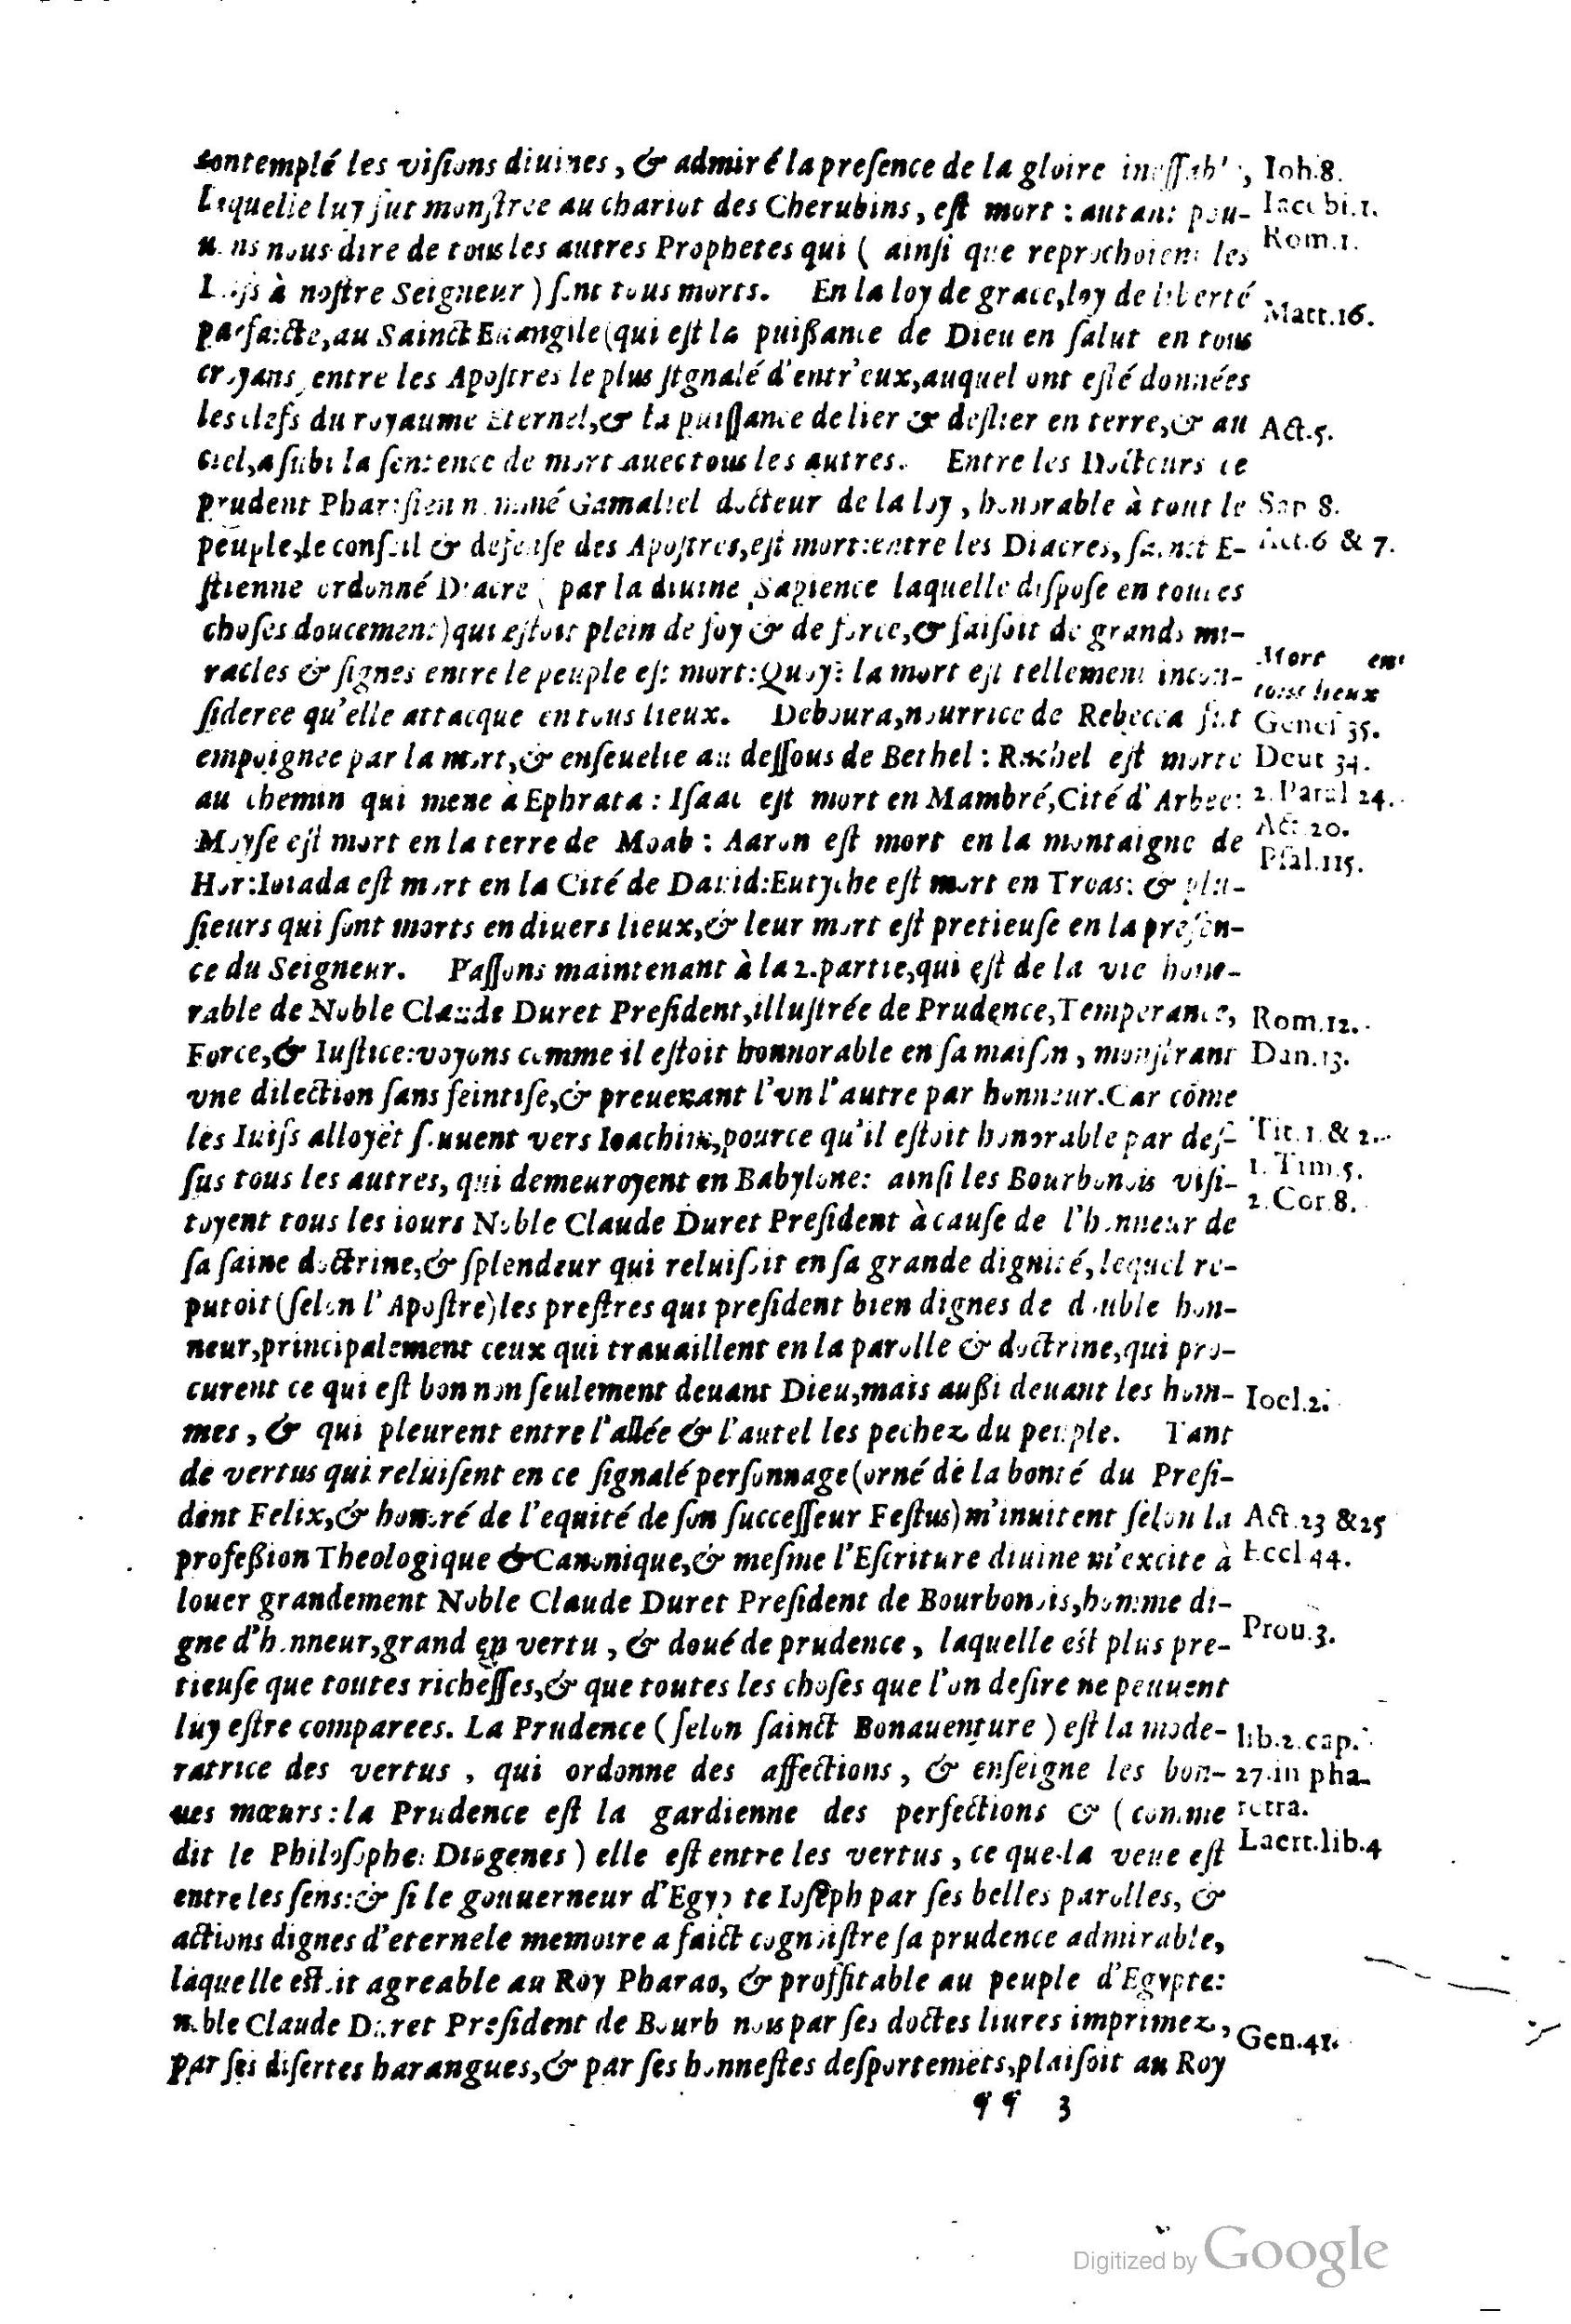 contemplé les visions diuines, & admiré la presence de la gloire ineffab',
Laquelle luy fut monstree au chariot des Cherubins, est mort : autant pou-
uons nous dire de tous les autres Prophetes qui ( ainsi que reprochoient les
Iuifs à nostre Seigneur ) sont tous morts. En la loy de grace, loy de liberté
parfaicte, au Sainct Euangile (qui est la puißance de Dieu en salut en tous
croyans, entre les Apostres le plus signalé d'entr'eux, auquel ont esté données
les clefs du royaume Eternel, & la puissance de lier & deslier en terre, & au
ciel, a subi la sentence de mort auec tous les autres. Entre les Docteurs ce
prudent Pharisien nommé Gamaliel docteur de la loy, honorable à tout le
peuple, le conseil & defense des Apostres, est mort : entre les Diacres, sainct E-
stienne ordonné Diacre ( par la diuine Sapience laquelle dispose en toutes
choses doucement) qui estoit plein de foy & de force, & faisoit de grands mi-
racles & signes entre le peuple est mort : Quoy ? la mort est tellement incon-
sideree qu'elle attacque en tous lieux. Deboura, nourrice de Rebecca fut
empoignee par la mort, & enseuelie au dessous de Bethel : Rachel est morte
au chemin qui mene à Ephrata : Isaac est mort en Mambré, Cité d'Arbee :
Moyse est mort en la terre de Moab : Aaron est mort en la montaigne de
Hor : Ioiada est mort en la Cité de Dauid : Eutyche est mort en Troas : & plu-
sieurs qui sont morts en diuers lieux, & leur mort est pretieuse en la presen-
ce du Seigneur. Passons maintenant à la 2. partie, qui est de la vie hono-
rable de Noble Claude Duret President, illustrée de Prudence, Temperance,
Force, & Iustice : voyons comme il estoit honnorable en sa maison, monstrant
vne dilection sans feintise, & preuenant l'vn l'autre par honneur. Car cõme
les Iuifs alloyẽt souuent vers Ioachim, pource qu'il estoit honorable par des-
sus tous les autres, qui demeuroyent en Babylone : ainsi les Bourbonois visi-
toyent tous les iours Noble Claude Duret President à cause de l'honneur de
sa saine doctrine, & splendeur qui reluisoit en sa grande dignité, lequel re-
putoit (selon l'Apostre) les prestres qui president bien dignes de double hon-
neur, principalement ceux qui trauaillent en la parolle & doctrine, qui pro-
curent ce qui est bon non seulement deuant Dieu, mais außi deuant les hom-
mes, & qui pleurent entre l'allée & l'autel les pechez du peuple. Tant
de vertus qui reluisent en ce signalé personnage (orné de la bonté du Presi-
dent Felix, & honoré de l'equité de son successeur Festus) m'inuitent selon la
profeßion Theologique & Canonique, & mesme l'Escriture diuine m'excite à
louer grandement Noble Claude Duret President de Bourbonois, homme di-
gne d'honneur, grand en vertu, & doué de prudence, laquelle est plus pre-
tieuse que toutes richesses, & que toutes les choses que l'on desire ne peuuent
luy estre comparees. La Prudence ( selon sainct Bonauenture ) est la mode-
ratrice des vertus, qui ordonne des affections, & enseigne les bon-
nes mœurs : la Prudence est la gardienne des perfections & ( comme
dit le Philosophe Diogenes ) elle est entre les vertus, ce que la veue est
entre les sens : & si le gouuerneur d'Egypte Ioseph par ses belles parolles, &
actions dignes d'eternele memoire a faict cognoistre sa prudence admirable,
laquelle estoit agreable au Roy Pharao, & proffitable au peuple d'Egypte :
noble Claude Duret President de Bourbonois par ses doctes liures imprimez,
par ses disertes harangues, & par ses honnestes desportemẽts, plaisoit au Roy
¶¶ 3
Ioh.8.
Iacobi.1.
Rom.1.
Matt.16.
Act.5.
Sap 8.
Act.6 & 7.
Mort en
tous lieux
Genes 35.
Deut 34.
2. Paral 24.
Act 20.
Psal.115.
Rom.12.
Dan.13.
Tit.1. & 2.
1. Tim.5.
2. Cor.8.
Ioel.2.
Act.23 & 25
Eccl 44.
Prou.3.
lib.2.cap.
27.in pha-
retra.
Laert.lib.4
Gen.41.
Digitized by Google